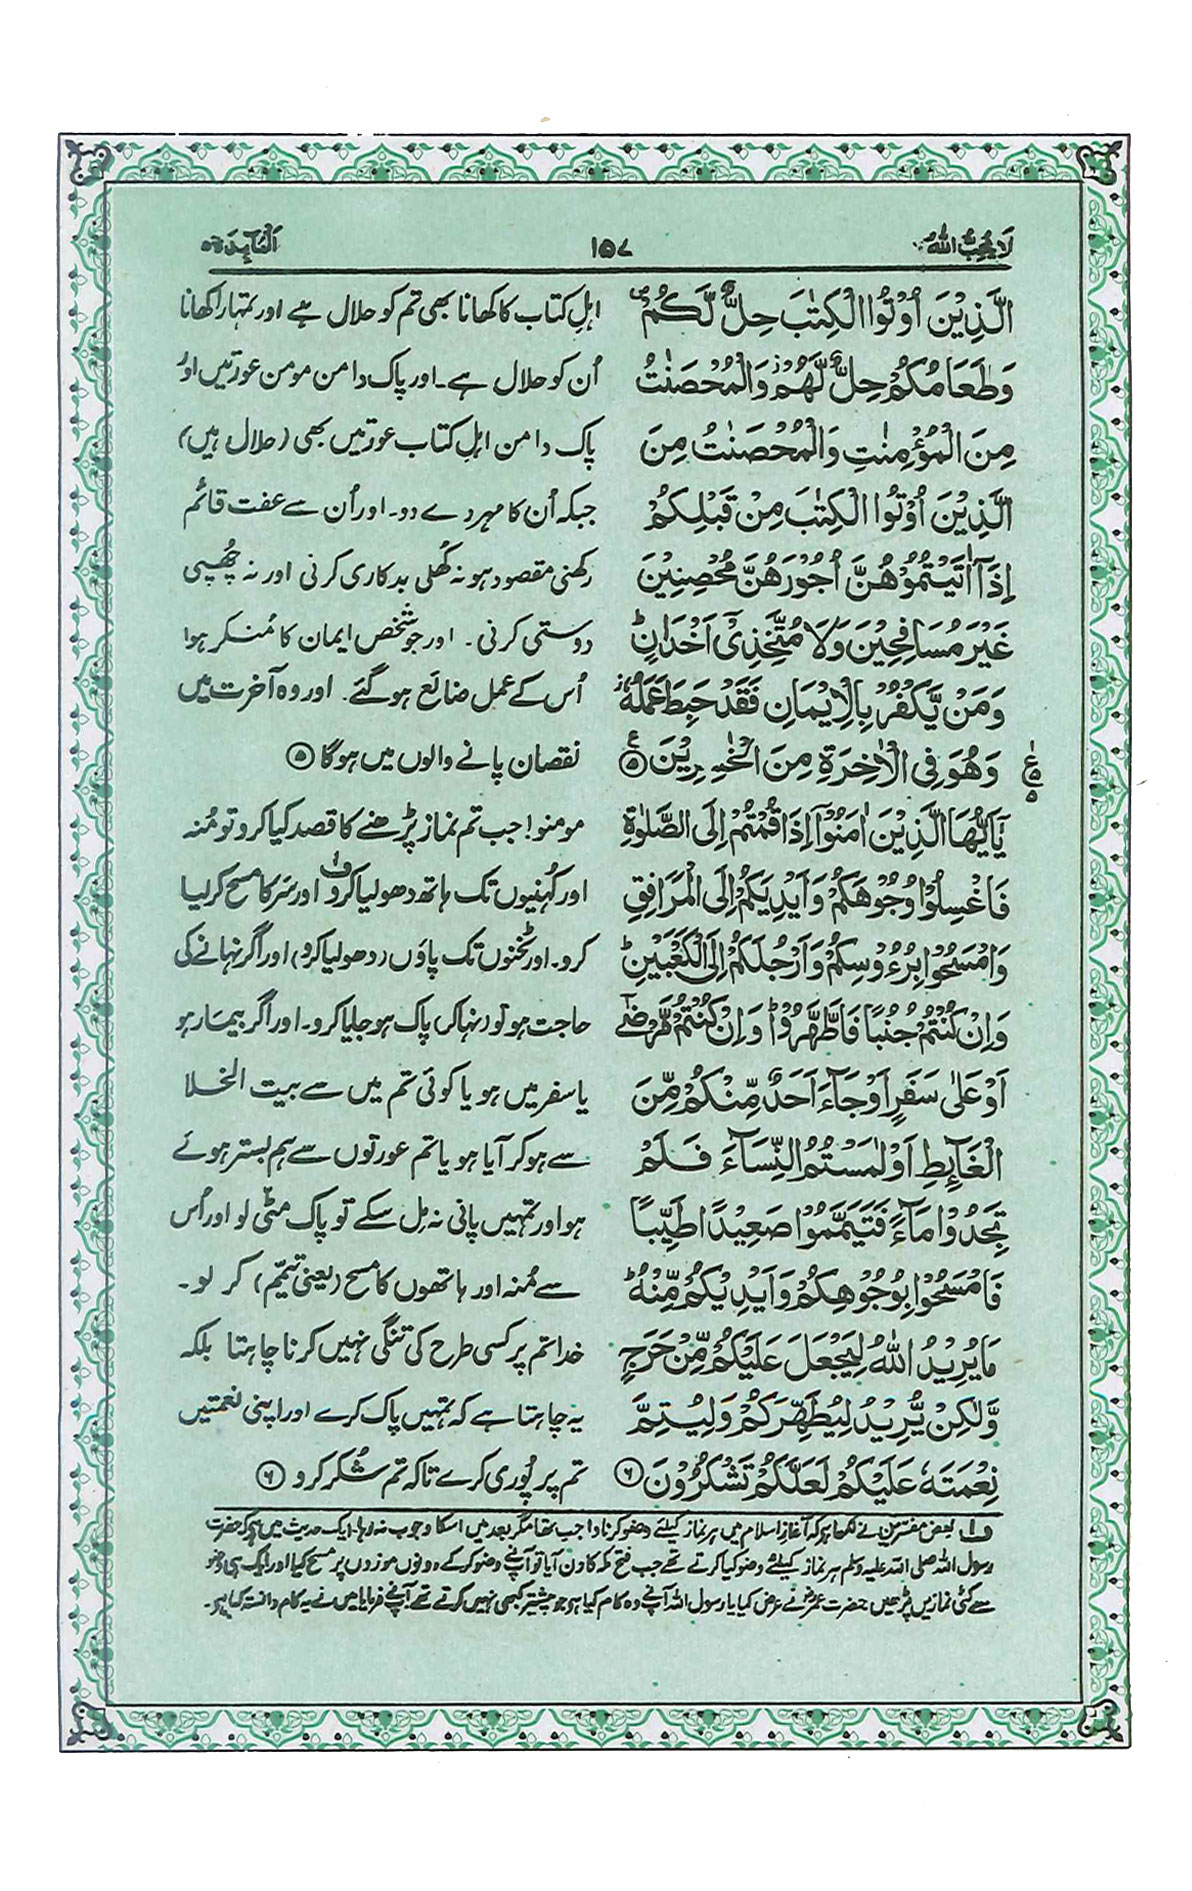 لَا يُحِبُّ اللهُ ١٥٧ اَلْمَآئِدَة ٥
الَّذِيْنَ اُوْتُوا الْكِتٰبَ حِلٌّ لَّكُمْ ۪
وَطَعَامُكُمْ حِلٌّ لَّهُمْ ؗ وَالْمُحْصَنٰتُ
مِنَ الْمُؤْمِنٰتِ وَالْمُحْصَنٰتُ مِنَ
الَّذِيْنَ اُوْتُوا الْكِتٰبَ مِنْ قَبْلِكُمْ
اِذَاۤ اٰتَيْتُمُوْهُنَّ اُجُوْرَهُنَّ مُحْصِنِيْنَ
غَيْرَ مُسَافِحِيْنَ وَلَا مُتَّخِذِيْۤ اَخْدَانٍ ؕ
وَمَنْ يَّكْفُرْ بِالْاِيْمَانِ فَقَدْ حَبِطَ عَمَلُهٗ ؗ
وَهُوَ فِي الْاٰخِرَةِ مِنَ الْخٰسِرِيْنَ ۝٥ ع ٥
يٰۤاَيُّهَا الَّذِيْنَ اٰمَنُوْۤا اِذَا قُمْتُمْ اِلَى الصَّلٰوةِ
فَاغْسِلُوْا وُجُوْهَكُمْ وَاَيْدِيَكُمْ اِلَى الْمَرَافِقِ
وَامْسَحُوْا بِرُءُوْسِكُمْ وَاَرْجُلَكُمْ اِلَى الْكَعْبَيْنِ ؕ
وَاِنْ كُنْتُمْ جُنُبًا فَاطَّهَّرُوْا ؕ وَاِنْ كُنْتُمْ مَّرْضٰۤى
اَوْ عَلٰى سَفَرٍ اَوْ جَآءَ اَحَدٌ مِّنْكُمْ مِّنَ
الْغَآئِطِ اَوْ لٰمَسْتُمُ النِّسَآءَ فَلَمْ
تَجِدُوْا مَآءً فَتَيَمَّمُوْا صَعِيْدًا طَيِّبًا
فَامْسَحُوْا بِوُجُوْهِكُمْ وَاَيْدِيْكُمْ مِّنْهُ ؕ
مَا يُرِيْدُ اللهُ لِيَجْعَلَ عَلَيْكُمْ مِّنْ حَرَجٍ
وَّلٰكِنْ يُّرِيْدُ لِيُطَهِّرَكُمْ وَلِيُتِمَّ
نِعْمَتَهٗ عَلَيْكُمْ لَعَلَّكُمْ تَشْكُرُوْنَ ۝٦
اہلِ کتاب کا کھانا بھی تم کو حلال ہے اور تمہارا کھانا
اُن کو حلال ہے۔ اور پاک دامن مومن عورتیں اور
پاک دامن اہلِ کتاب عورتیں بھی (حلال ہیں)
جبکہ اُن کا مہر دے دو۔ اور اُن سے عفت قائم
رکھنی مقصود ہو نہ کُھلی بدکاری کرنی اور نہ چُھپی
دوستی کرنی۔ اور جو شخص ایمان کا مُنکر ہوا
اُس کے عمل ضائع ہو گئے۔ اور وہ آخرت میں
نقصان پانے والوں میں ہوگا ۝۵
مومنو! جب تم نماز پڑھنے کا قصد کیا کرو تو مُنہ
اور کُہنیوں تک ہاتھ دھو لیا کرو ف۱ اور سَر کا مسح کر لیا
کرو۔ اور ٹخنوں تک پاؤں (دھو لیا کرو) اور اگر نہانے کی
حاجت ہو تو (نہا کر) پاک ہو جایا کرو۔ اور اگر بیمار ہو
یا سفر میں ہو یا کوئی تم میں سے بیت الخلا
سے ہو کر آیا ہو یا تم عورتوں سے ہم بستر ہوئے
ہو اور تمہیں پانی نہ مِل سکے تو پاک مٹی لو اور اُس
سے مُنہ اور ہاتھوں کا مسح (یعنی تیمّم) کر لو۔
خدا تم پر کسی طرح کی تنگی نہیں کرنا چاہتا بلکہ
یہ چاہتا ہے کہ تمہیں پاک کرے اور اپنی نعمتیں
تم پر پُوری کرے تاکہ تم شُکر کرو ۝۶
ف۱ بعض مفسّرین نے لکھا ہے کہ آغازِ اسلام میں ہر نماز کیلئے وضو کرنا واجب تھا مگر بعد میں اسکا وجوب نہ رہا۔ ایک حدیث میں ہے کہ حضرت
رسول اللہ صلی اللہ علیہ وسلم ہر نماز کیلئے وضو کیا کرتے تھے جب فتح مکہ کا دن آیا تو آپنے وضو کر کے دونوں موزوں پر مسح کیا اور ایک ہی وضو
سے کئی نمازیں پڑھیں حضرت عمرؓ نے عرض کیا یا رسول اللہ آپنے وہ کام کیا ہے جو پیشتر کبھی نہیں کرتے تھے آپنے فرمایا میں نے یہ کام دانستہ کیا ہے۔